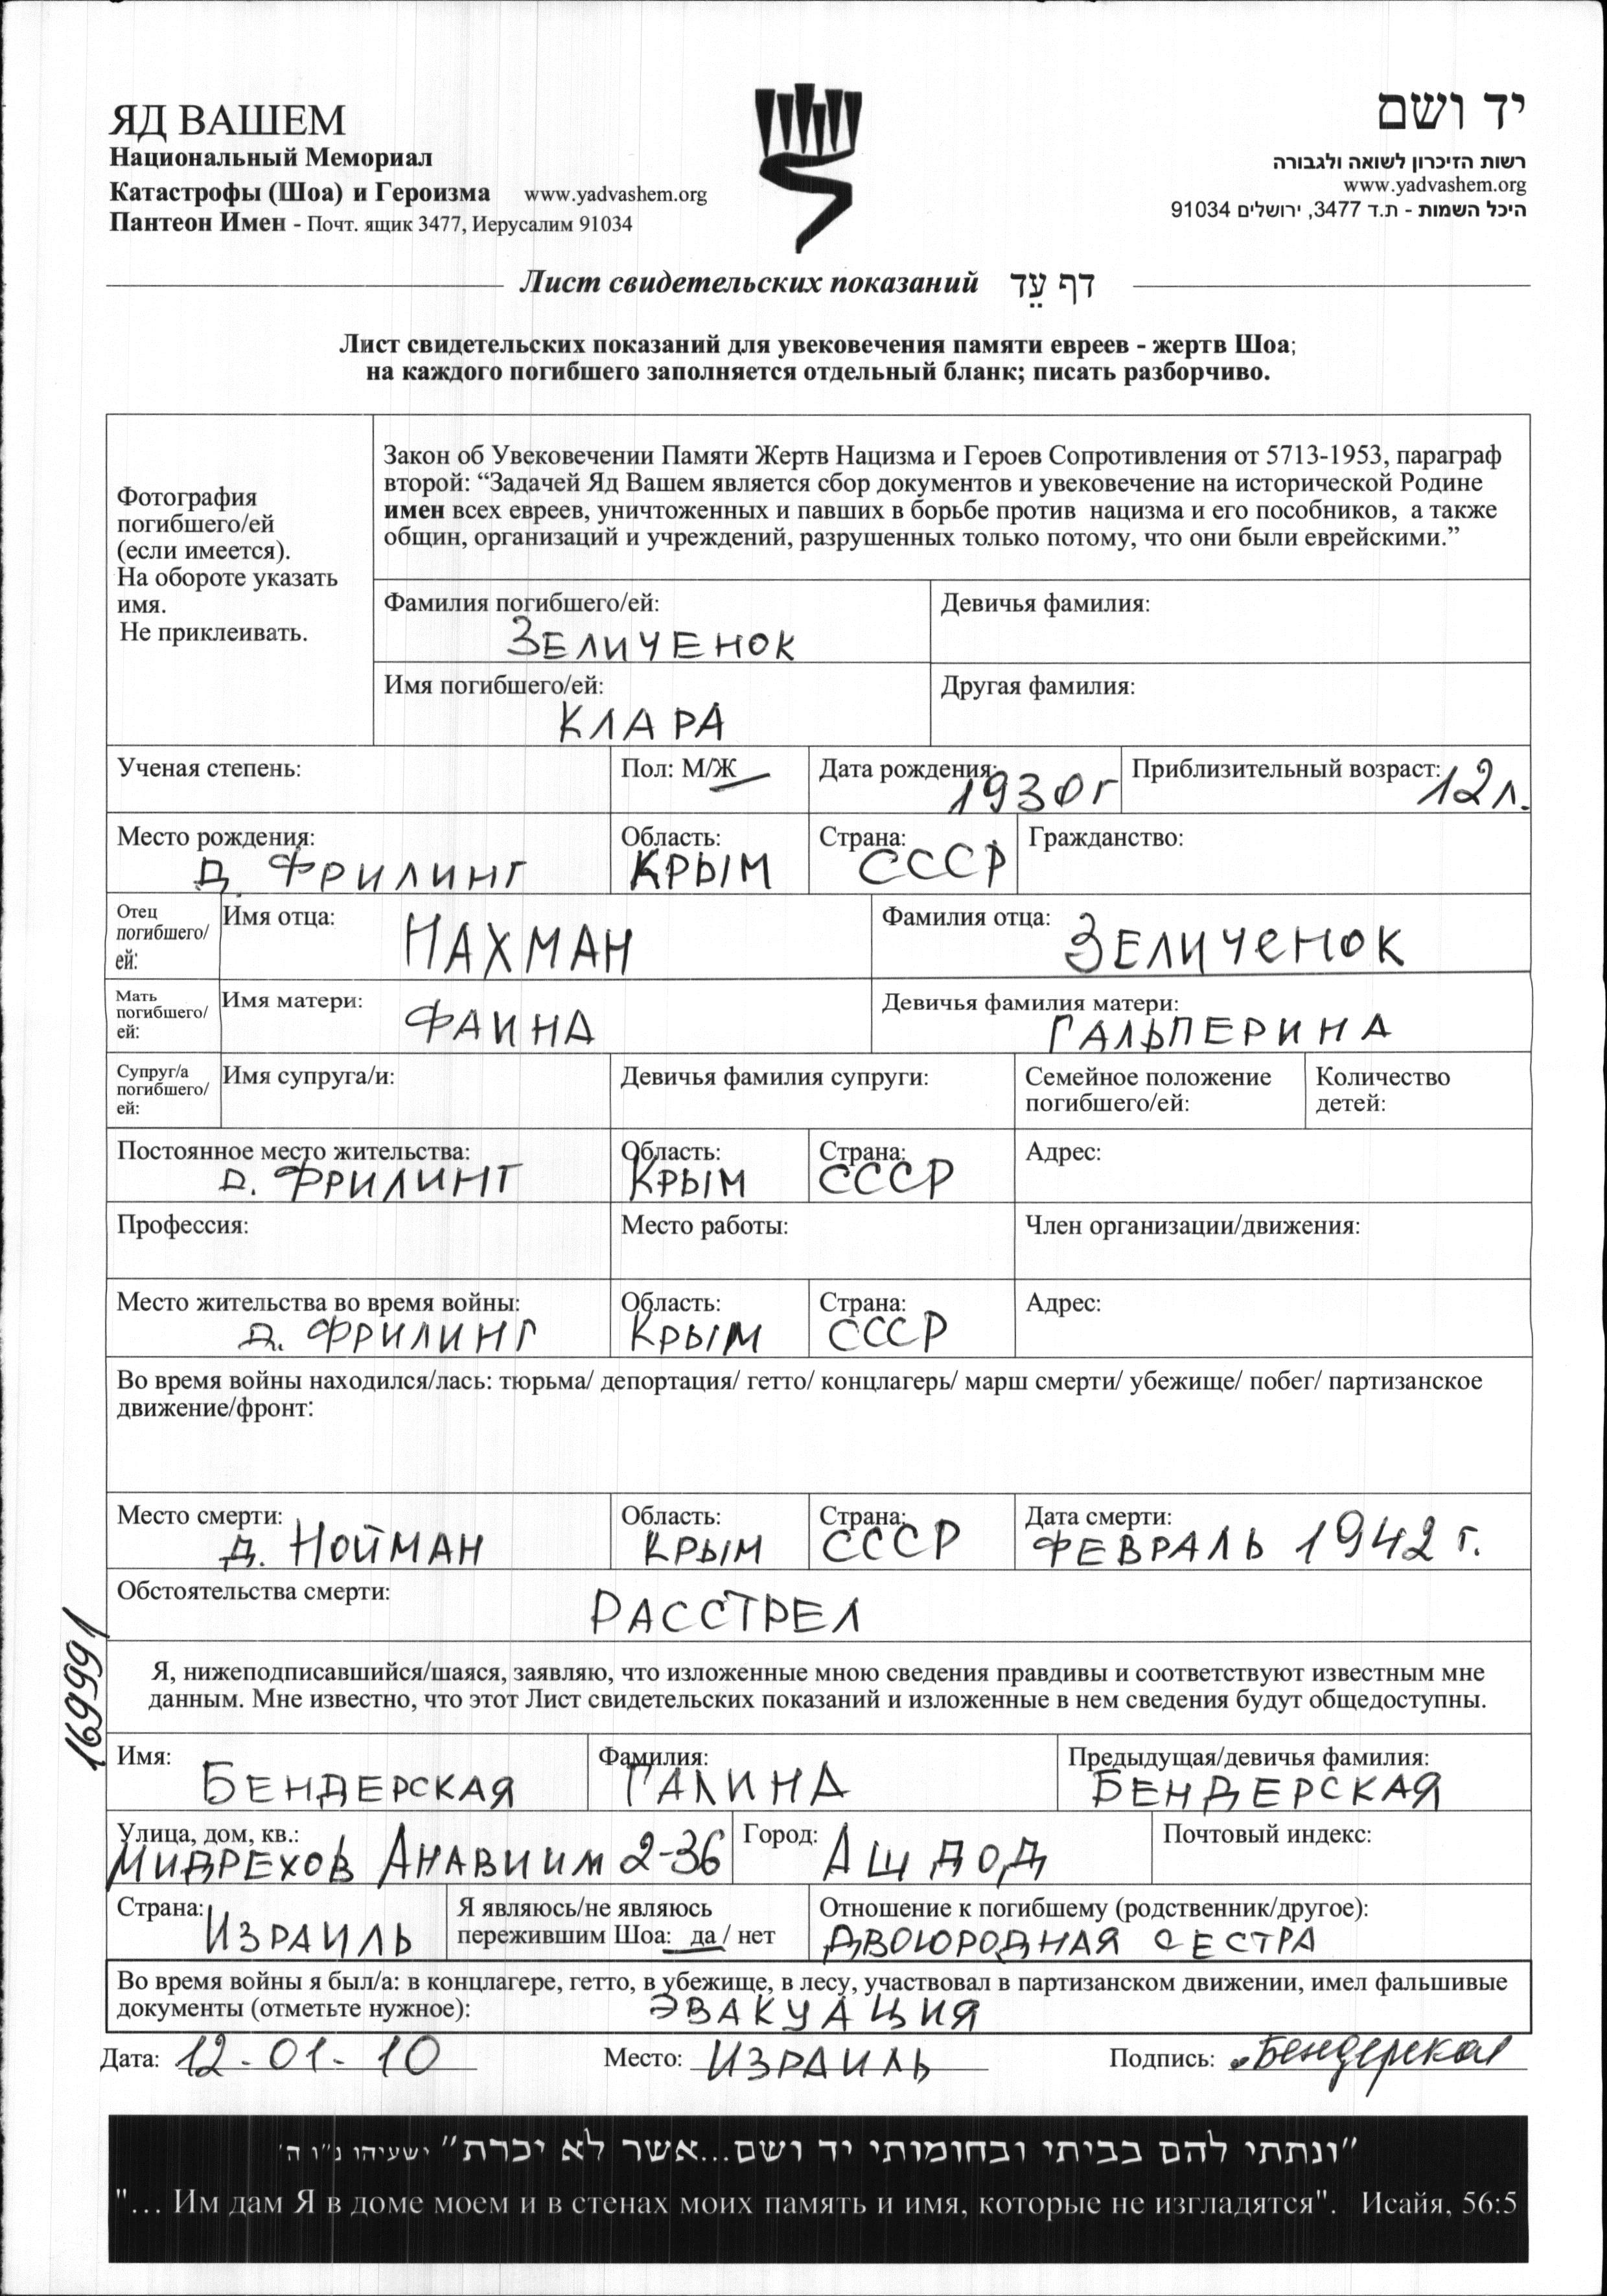 ЯД ВАШЕМ
Национальный Мемориал
Катастрофы (Шоа) и Героизма www.yadvashem.org
Пантеон Имен - Почт. ящик 3477, Иерусалим 91034
יד ושם
רשות הזיכרון לשואה ולגבורה
www.yadvashem.org
היכל השמות - ת.ד 3477, ירושלים 91034
Лист свидетельских показаний דף עֵד
Лист свидетельских показаний для увековечения памяти евреев - жертв Шоа;
на каждого погибшего заполняется отдельный бланк; писать разборчиво.
Фотография
погибшего/ей
(если имеется).
На обороте указать
имя.
Не приклеивать.
Закон об Увековечении Памяти Жертв Нацизма и Героев Сопротивления от 5713-1953, параграф
второй: “Задачей Яд Вашем является сбор документов и увековечение на исторической Родине
имен всех евреев, уничтоженных и павших в борьбе против нацизма и его пособников, а также
общин, организаций и учреждений, разрушенных только потому, что они были еврейскими.”
Фамилия погибшего/ей: Девичья фамилия:
ЗЕЛИЧЕНОК
Имя погибшего/ей: Другая фамилия:
КЛАРА
Ученая степень: Пол: М/Ж Дата рождения: 1930г Приблизительный возраст: 12л.
Место рождения: Область: Страна: Гражданство:
Д. ФРИЛИНГ КРЫМ СССР
Отец
погибшего/
ей:
Имя отца: НАХМАН Фамилия отца: ЗЕЛИЧЕНОК
Мать
погибшего/
ей:
Имя матери: ФАИНА Девичья фамилия матери: ГАЛЬПЕРИНА
Супруг/а
погибшего/
ей:
Имя супруга/и: Девичья фамилия супруги: Семейное положение
погибшего/ей:
Количество
детей:
Постоянное место жительства: Область: Страна: Адрес:
Д. ФРИЛИНГ КРЫМ СССР
Профессия: Место работы: Член организации/движения:
Место жительства во время войны: Область: Страна: Адрес:
Д. ФРИЛИНГ КРЫМ СССР
Во время войны находился/лась: тюрьма/ депортация/ гетто/ концлагерь/ марш смерти/ убежище/ побег/ партизанское
движение/фронт:
Место смерти: Область: Страна: Дата смерти:
Д. НОЙМАН КРЫМ СССР ФЕВРАЛЬ 1942 г.
Обстоятельства смерти: РАССТРЕЛ
169991
Я, нижеподписавшийся/шаяся, заявляю, что изложенные мною сведения правдивы и соответствуют известным мне
данным. Мне известно, что этот Лист свидетельских показаний и изложенные в нем сведения будут общедоступны.
Имя: Фамилия: Предыдущая/девичья фамилия:
БЕНДЕРСКАЯ ГАЛИНА БЕНДЕРСКАЯ
Улица, дом, кв.: Город: Почтовый индекс:
МИДРЕХОВ АНАВИИМ 2-36 АШДОД
Страна: ИЗРАИЛЬ
Я являюсь/не являюсь
пережившим Шоа: да / нет
Отношение к погибшему (родственник/другое):
ДВОЮРОДНАЯ СЕСТРА
Во время войны я был/а: в концлагере, гетто, в убежище, в лесу, участвовал в партизанском движении, имел фальшивые
документы (отметьте нужное): ЭВАКУАЦИЯ
Дата: 12-01-10 Место: ИЗРАИЛЬ Подпись: Бендерская
"ונתתי להם בביתי ובחומותי יד ושם...אשר לא יכרת" ישעיהו נ"ו ה'
"... Им дам Я в доме моем и в стенах моих память и имя, которые не изгладятся". Исайя, 56:5